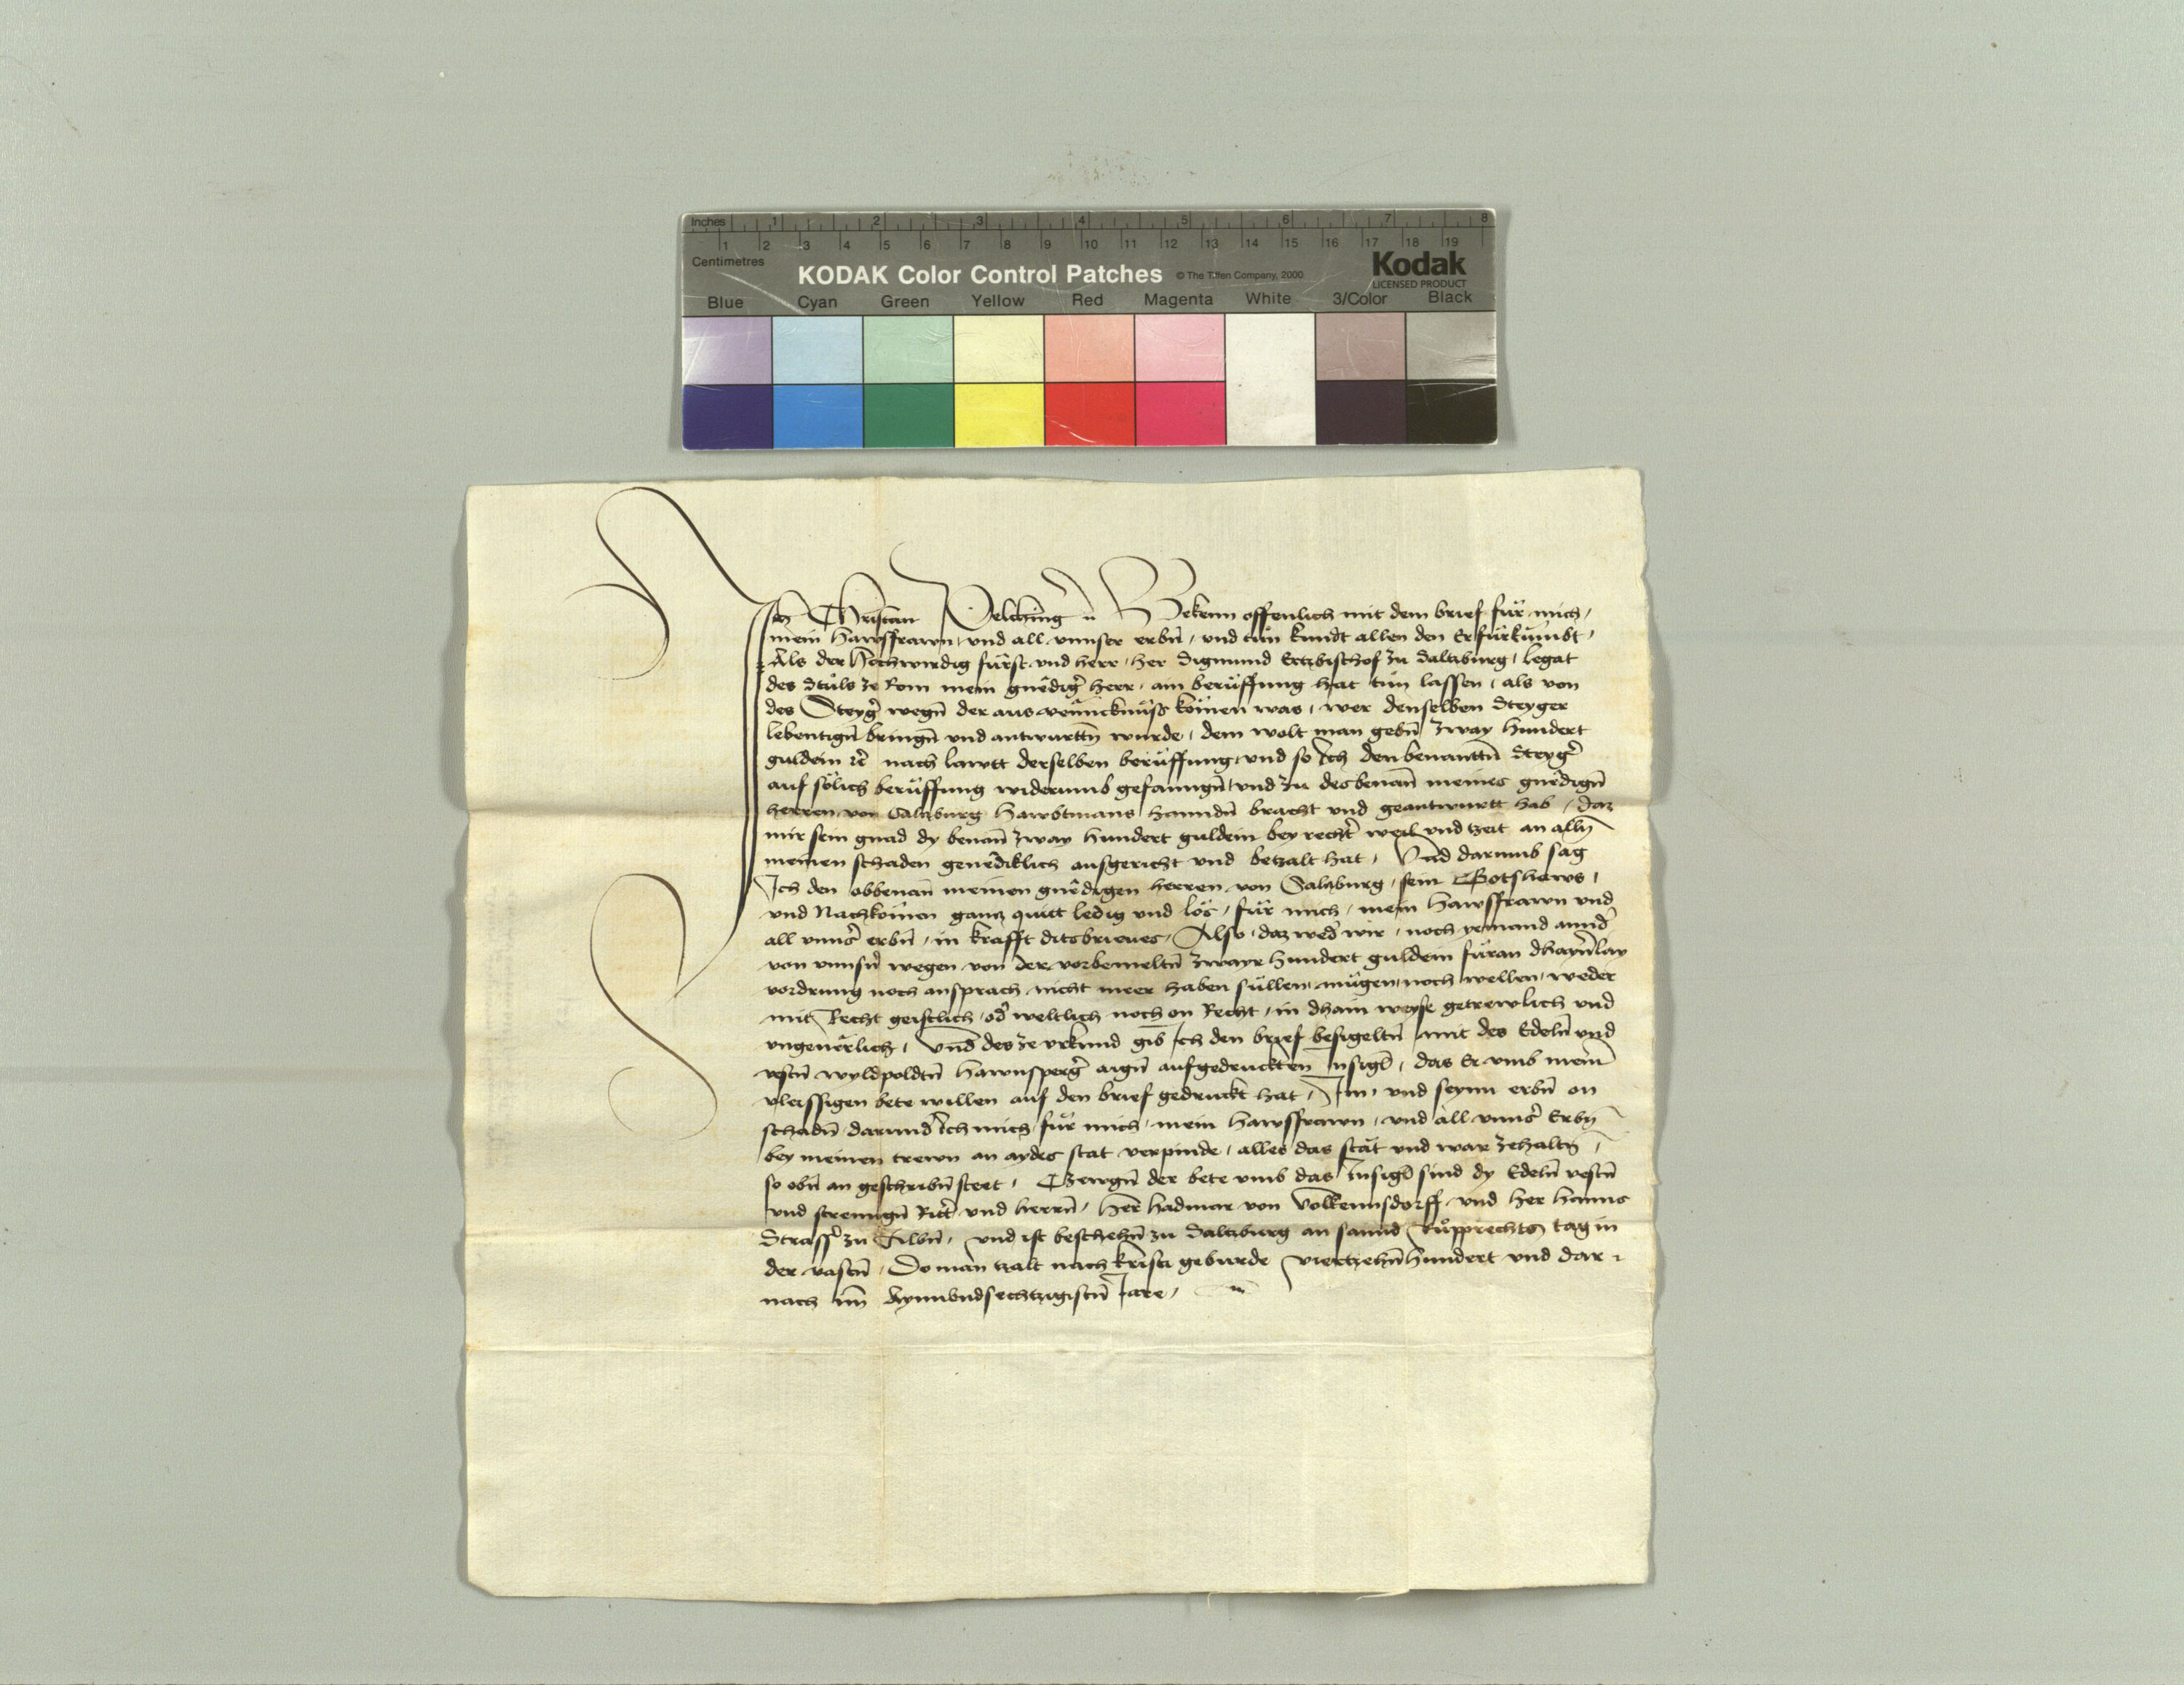 Inches 1 2 3 4 5 6 7 8
1 2 3 4 5 6 7 8 9 10 11 12 13 14 15 16 17 18 19
Centimetres
KODAK Color Control Patches © The Tiffen Company, 2000 Kodak
LICENSED PRODUCT
Blue Cyan Green Yellow Red Magenta White 3/Color Black
Ich Cristan Bekenn offenlich mit dem brief für mich,
mein Hawsfrawn, vnd all vnnser erbn̄, vnd tün kundt allen den Er fürkümbt,
Als der Hochwirdig fürst vnd herr, her Sigmund Ertzbischof zu Saltzburg, legat
des Stüls ze Rom mein gnēdigr̄ herr, ain berüffung hat tün lassen, als von
des Steygr̄ wegn̄ der aus vēnncknüss kömen was, wer denselben Steyger
lebentign̄ bringn̄ vnd antwurttn̄ wurde, dem wolt man gebn̄ zway hundert
guldein rc̄ nach lawtt derselben berüffung, vnd so Ich den benanttn̄ Steygr̄
auf sölich berüffung widerumb gefanngn̄, vnd zu des benan̄ meines gnēdign̄
herren von Salzburg Hawbtmans hanndn̄ bracht vnd geantwurtt hab, daz
mir sein gnad dy benan̄ zway hundert guldein bey rechtr̄ weil vnd tzeit an alln̄
meinen schaden genēdiklich ausgericht vnd betzalt hat, Vnd darumb sag
Ich den obbenan̄ meinen gnēdigen herren von Salzburg, sein Gotshaws,
vnd Nachkömen ganz quitt ledig vnd lös, für mich, mein Hawsfrawn vnd
all vnnsr̄ erbn̄, in krafft dits brieues, Also, daz wedr̄ wir, noch yemand anndr̄
von vnnsrn̄ wegen von der vorbemeltn̄ zwayr hundert guldein füran dhaynrlay
vordrung noch ansprach nicht meer haben süllen, mügen, noch wellen, weder
mit Recht geistlich, odr̄ weltlich noch on Recht, in dhain weyse getrewlich vnd
vngeuērlich, Vnd des ze vrkund gib Ich den brief besigeltn̄ mit des Edeln̄ vnd
vestn̄ wyldpoldtn̄ Hawnspergr̄ aign̄ aufgedruckten Insigl̄, das Er vmb mein
vleissigen bete willen auf den brief gedruckt hat, Im, vnd seynn erbn̄ on
schadn̄ darundr̄ Ich mich, für mich, mein Hawsfrawn, vnd all vnnsr̄ Erbn̄
bey meinen trewn an aydes stat verpinde, alles das stät vnd war zehaltn̄,
so obn̄ an geschribn̄ steet, Tzewgn̄ der bete vmb das Insigl̄ sind dy Edeln̄ vestn̄
vnd strenngn̄ Rittr̄ vnd herrn̄, Her Hadmar von Volkennsdorff, vnd Her Hanns
Strassr̄ zu vnd ist beschehn̄ zu Saltzburg an sannd Rüpprechts tag in
der vastn̄, Do man tzalt nach kristi geburde viertzehn̄hundert vnd dar
nach im̄ Aynnvndsechtzigistn̄ Jare,